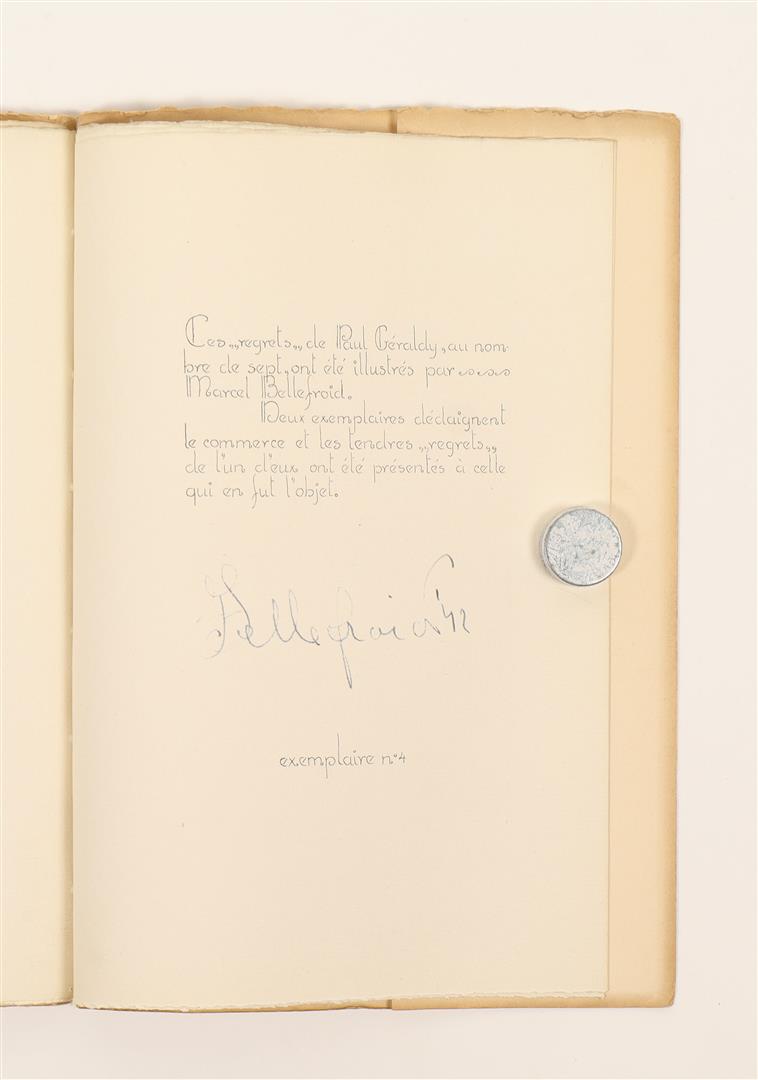 Ces „regrets„ de Paul Géraldy, au nom-
bre de sept, ont été illustrés par
Marcel Bellefroid.
Deux exemplaires dédaignent
le commerce et les tendres „regrets„
de l'un d'eux ont été présentés à celle
qui en fut l'objet.
Bellefroid '42
exemplaire n°4